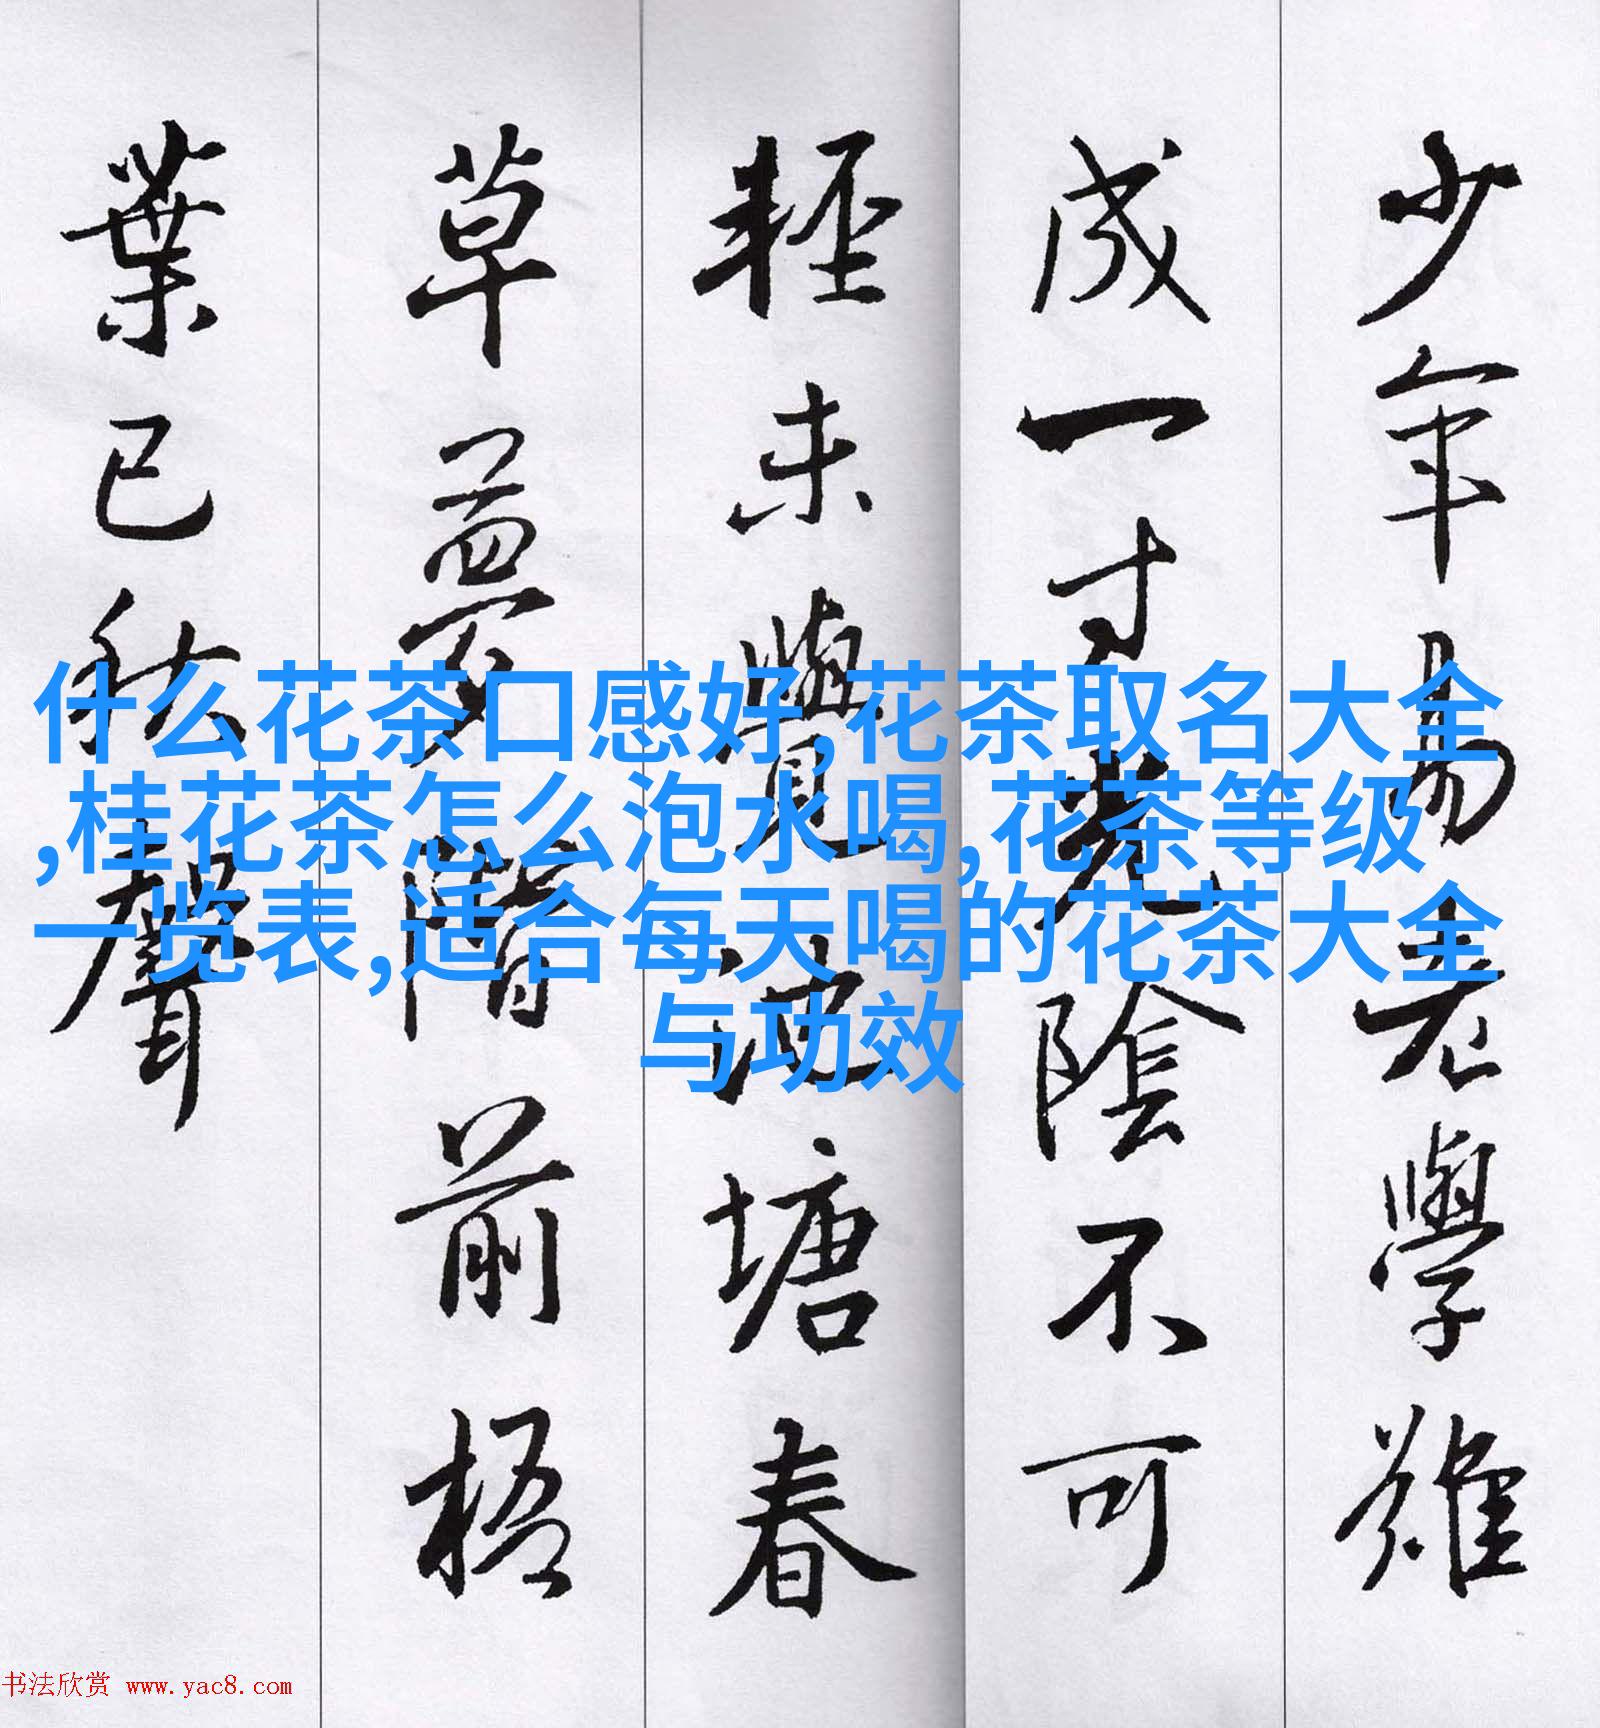 少年易老學難
成一寸光陰不可
輕未覺池塘春
草夢階前梧
葉已秋聲
什么花茶口感好,花茶取名大全
,桂花茶怎么泡水喝,花茶等级
一览表,适合每天喝的花茶大全
与功效
书法欣赏 www.yac8.com